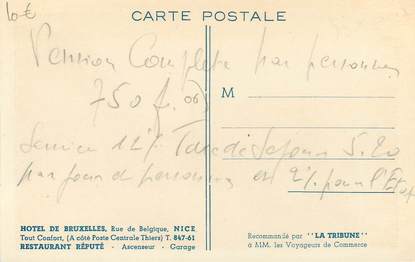 10€
CARTE POSTALE
Pension Complete par personnes
750 fr. (06)
M
Service 12% Taxe de Sejour 5.20
par jour et personne et 2% pour l'Etat
HOTEL DE BRUXELLES, Rue de Belgique, NICE
Tout Confort, (A côté Poste Centrale Thiers) T. 847-61
RESTAURANT RÉPUTÉ - Ascenseur - Garage
Recommandé par "LA TRIBUNE"
à MM. les Voyageurs de Commerce